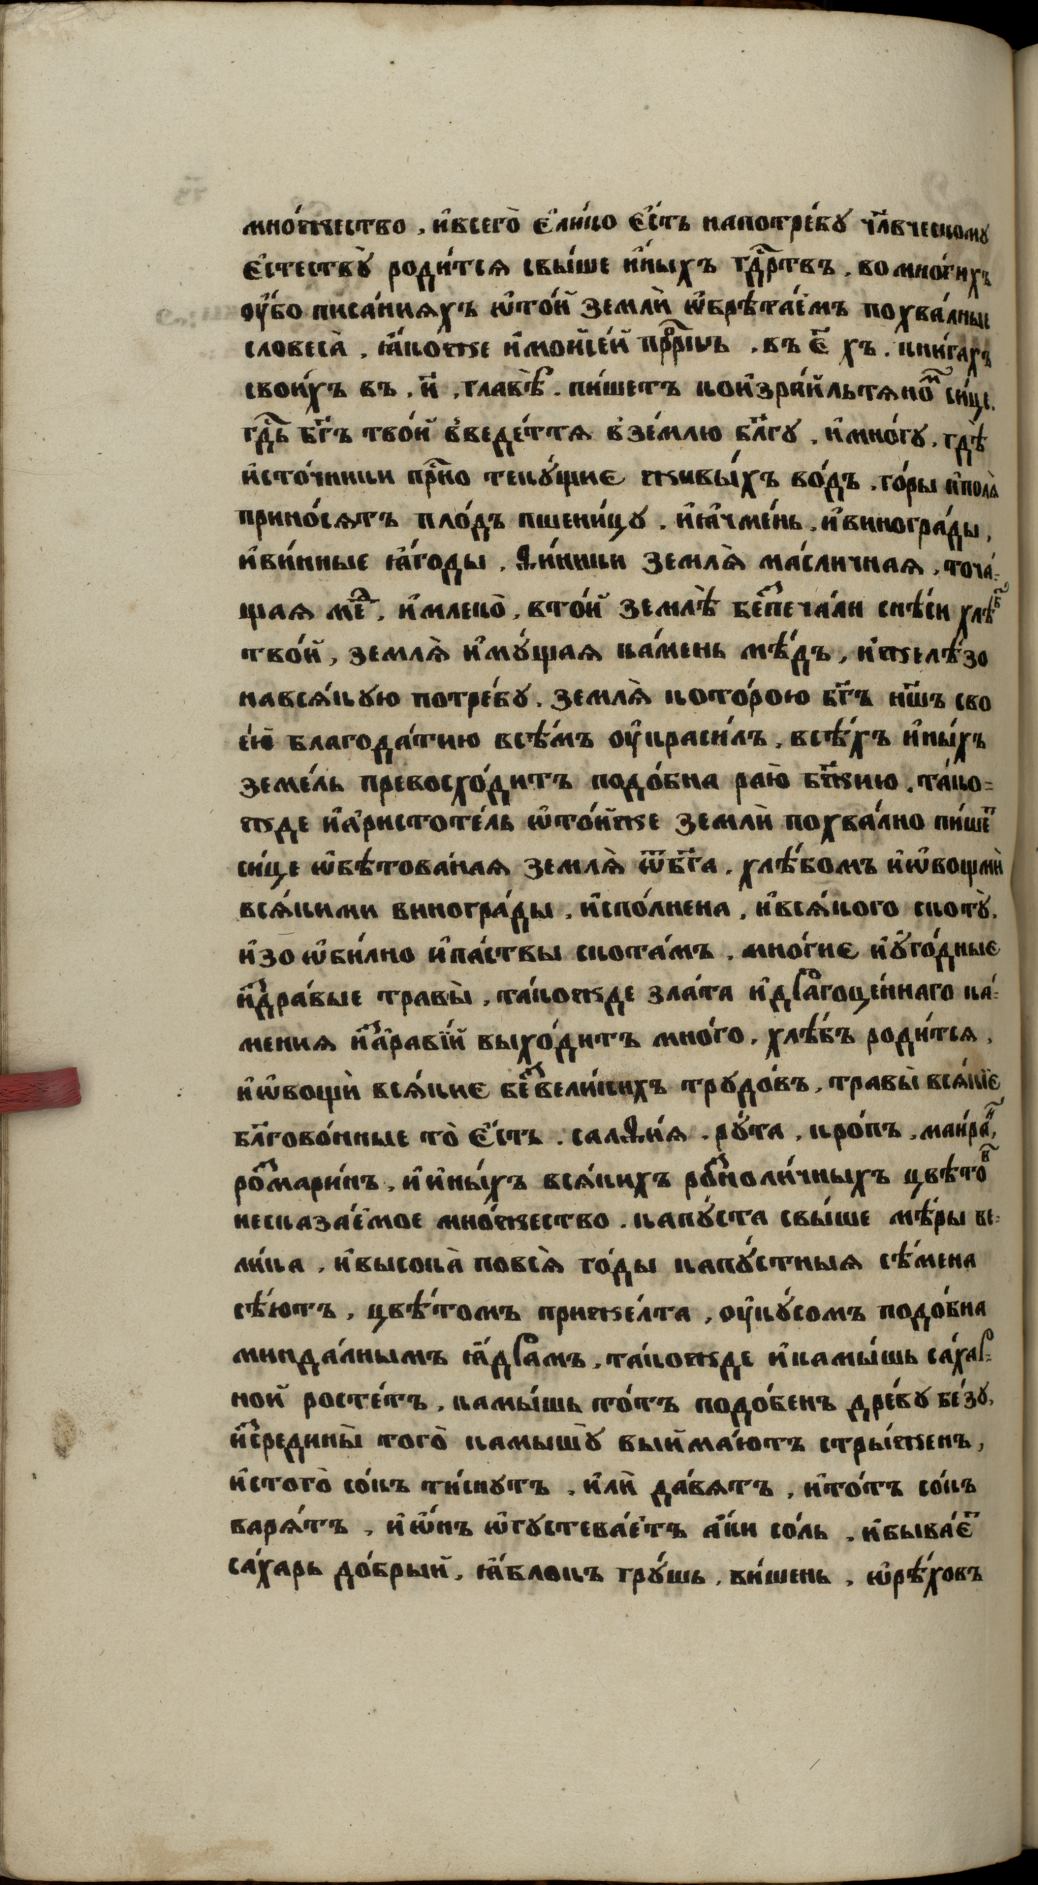 мно́жество, и҆всего̀ є҆ли́ко є҆́сть напотре́бу чл҃вческому
є҆стеству̀ роди́тся свы́ше и҆ны́хъ гдⷭ҇рствъ. во мно́гихъ
ᲂу҆́бо писа́нияхъ ѡ҆то́й землѝ ѡ҆брѣта́емъ похва́лные
словеса̀, ꙗ҆́коже и҆моисе́й прⷪ҇ро́къ, въ е҃ хъ. кни́гахъ
свои́хъ въ, и҃, главѣ̀. пи́шетъ коизраи́льтяномъ си́це.
гдⷭ҇ь бг҃ъ тво́й введе́ття взе́млю бл҃гу, и҆мно́гу, гдѣ̀
и҆сто́чники прⷭ҇но теку́щие живы́хъ во́дъ. го́ры и҆поля̀
прино́сятъ пло́дъ пшени́цу, и҆ꙗ҆чме́нь, и҆виногра́ды,
и҆ви́нные ꙗ҆́годы, ѳи́ники земля̀ ма́сличная, точа́-
щая ме́дъ, и҆млеко̀, вто́й землѣ̀ беспеча́ли снѣ́си хлѣ́бъ
тво́й, земля̀ и҆му́щая ка́мень мѣ́дъ, и҆желѣ́зо
нався́кую потре́бу. земля̀ кото́рою бг҃ъ нш҃ъ сво
е́й благода́тию всѣ́мъ ᲂу҆кра́силъ, всѣ́хъ и҆ны́хъ
земе́ль превосхо́дитъ подо́бна раю̀ бж҃ию, та́ко-
жде и҆а҆ристоте́ль ѡ҆то́йже землѝ похва́лно пи́шетъ
си́це ѡ҆бѣтова́ная земля̀ ѿбг҃а, хлѣ́бомъ и҆ѡ҆вощми
вся́кими виногра́ды, и҆спо́лнена, и҆вся́кого скоту̀,
и҆зоѡ҆би́лно и҆па́ствы скота́мъ, мно́гие и҆уго́дные
и҆здра́вые травы̀, та́кожде зла́та и҆драгоце́ннаго ка́-
мения и҆за҆ра́вий выхо́дитъ мно́го, хлѣ́бъ роди́тся,
и҆ѡ҆вощи вся́кие безвели́кихъ трудо́въ, травы̀ вся́кие
бл҃гово́нные то̀ є҆́сть. салѳи́я. ру́та, кро́пъ, маира́нъ,
розмари́нъ, и҆и҆ны́хъ вся́кихъ разноли́чныхъ цвѣто́въ
несказа́емое мно́жество. капу́ста свы́ше мѣ́ры ве-
ли́ка, и҆высока̀ повся̀ го́ды капу́стныя сѣ́мена
сѣ́ютъ, цвѣ́томъ прижелта, ᲂу҆ку́сомъ подо́бна
минда́лнымъ ꙗ҆́драмъ, та́кожде и҆камы́шь саха́р-
ной росте́тъ, камы́шь то́тъ подо́бенъ дре́ву безу,
и҆средины̀ того̀ камышу̀ выйма́ютъ стры́жень,
и҆стого̀ со́къ ти́снутъ, и҆лѝ да́вятъ, и҆то́тъ со́къ
варя́тъ, и҆ѡ҆́нъ ѡ҆густева́етъ а҆́ки со́ль, и҆быва́етъ
са́харь до́брый, ꙗ҆́блокъ гру́шь, ви́шень, ѡ҆рѣ́ховъ